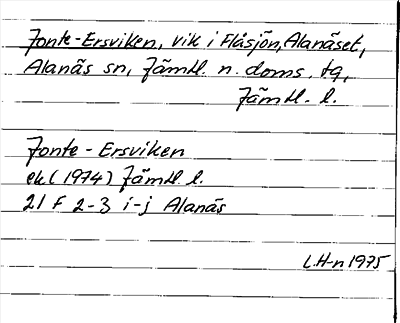 Jonte-Ersviken, vik i Flåsjön, Alanäset,
Alanäs sn, Jämtl. n. doms. tg,
Jämtl. l.
Jonte-Ersviken
ek (1974) Jämtl. l.
21 F 2-3 i-j Alanäs
L.H-n 1975